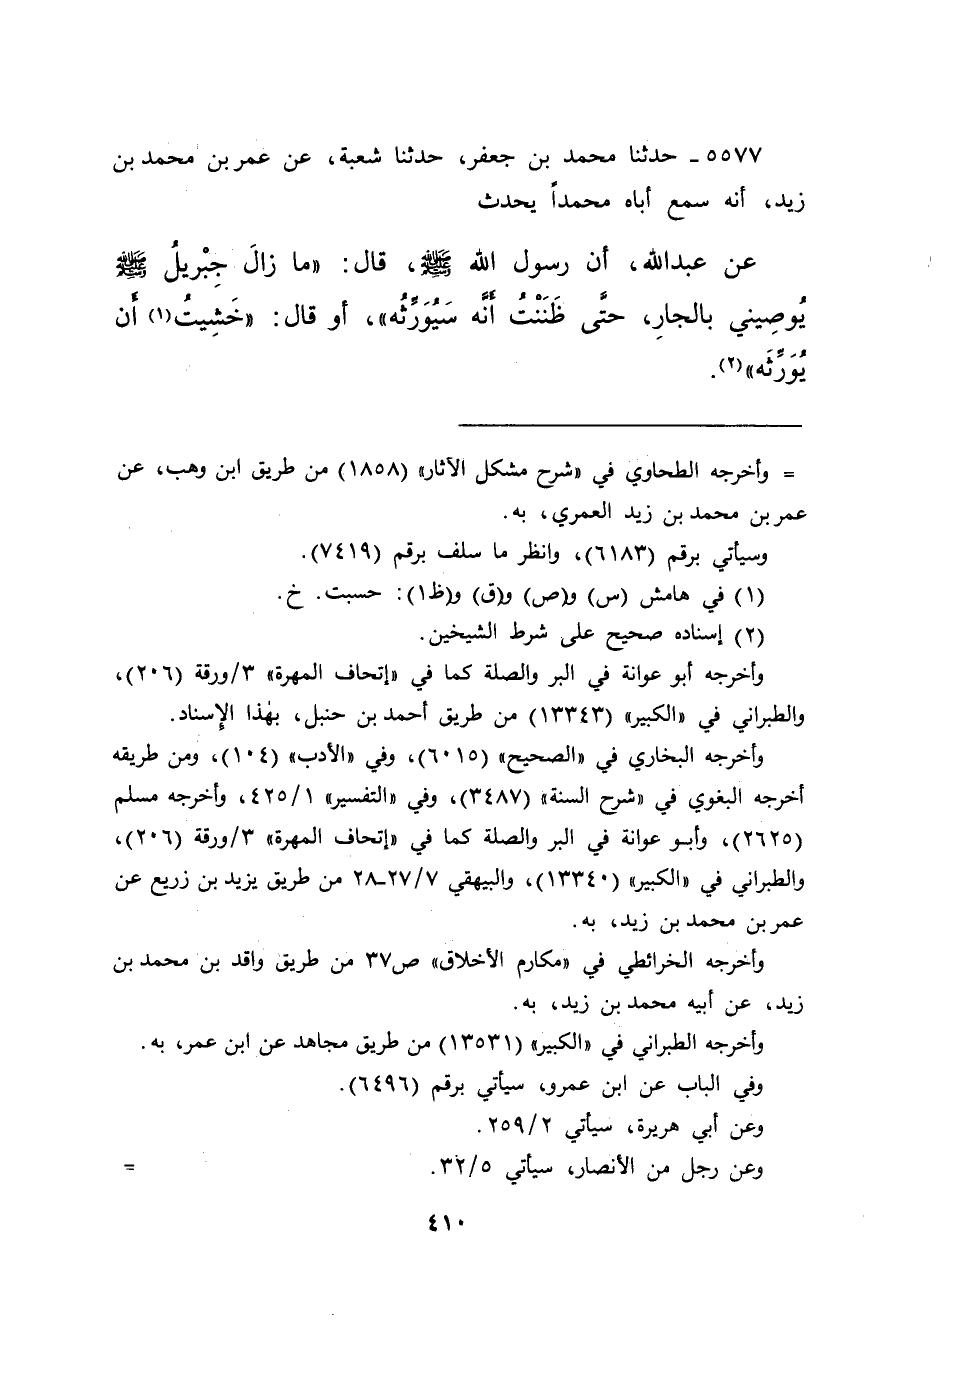 ٥٥٧٧ ـ حدثنا محمد بن جعفر، حدثنا شعبة، عن عمر بن محمد بن
زيد، أنه سمع أباه محمداً يحدث
عن عبدالله، أن رسول الله ﷺ، قال: «ما زالَ جِبْريلُ ﷺ
يُوصِيني بالجارِ، حتَّى ظَنَنْتُ أَنَّه سَيُوَرِّثُه»، أو قال: «خَشِيتُ(١) أَن
يُوَرِّثَه»(٢).
= وأخرجه الطحاوي في «شرح مشكل الآثار» (١٨٥٨) من طريق ابن وهب، عن
عمر بن محمد بن زيد العمري، به.
وسيأتي برقم (٦١٨٣)، وانظر ما سلف برقم (٧٤١٩).
(١) في هامش (س) و(ص) و(ق) و(ظ١): حسبت. خ.
(٢) إسناده صحيح على شرط الشيخين.
وأخرجه أبو عوانة في البر والصلة كما في «إتحاف المهرة» ٣/ورقة (٢٠٦)،
والطبراني في «الكبير» (١٣٣٤٣) من طريق أحمد بن حنبل، بهٰذا الإِسناد.
وأخرجه البخاري في «الصحيح» (٦٠١٥)، وفي «الأدب» (١٠٤)، ومن طريقه
أخرجه البغوي في «شرح السنة» (٣٤٨٧)، وفي «التفسير» ٤٢٥/١، وأخرجه مسلم
(٢٦٢٥)، وأبو عوانة في البر والصلة كما في «إتحاف المهرة» ٣/ورقة (٢٠٦)،
والطبراني في «الكبير» (١٣٣٤٠)، والبيهقي ٢٧/٧ـ٢٨ من طريق يزيد بن زريع عن
عمر بن محمد بن زيد، به.
وأخرجه الخرائطي في «مكارم الأخلاق» ص٣٧ من طريق واقد بن محمد بن
زيد، عن أبيه محمد بن زيد، به.
وأخرجه الطبراني في «الكبير» (١٣٥٣١) من طريق مجاهد عن ابن عمر، به.
وفي الباب عن ابن عمرو، سيأتي برقم (٦٤٩٦).
وعن أبي هريرة، سيأتي ٢٥٩/٢.
وعن رجل من الأنصار، سيأتي ٣٢/٥. =
٤١٠